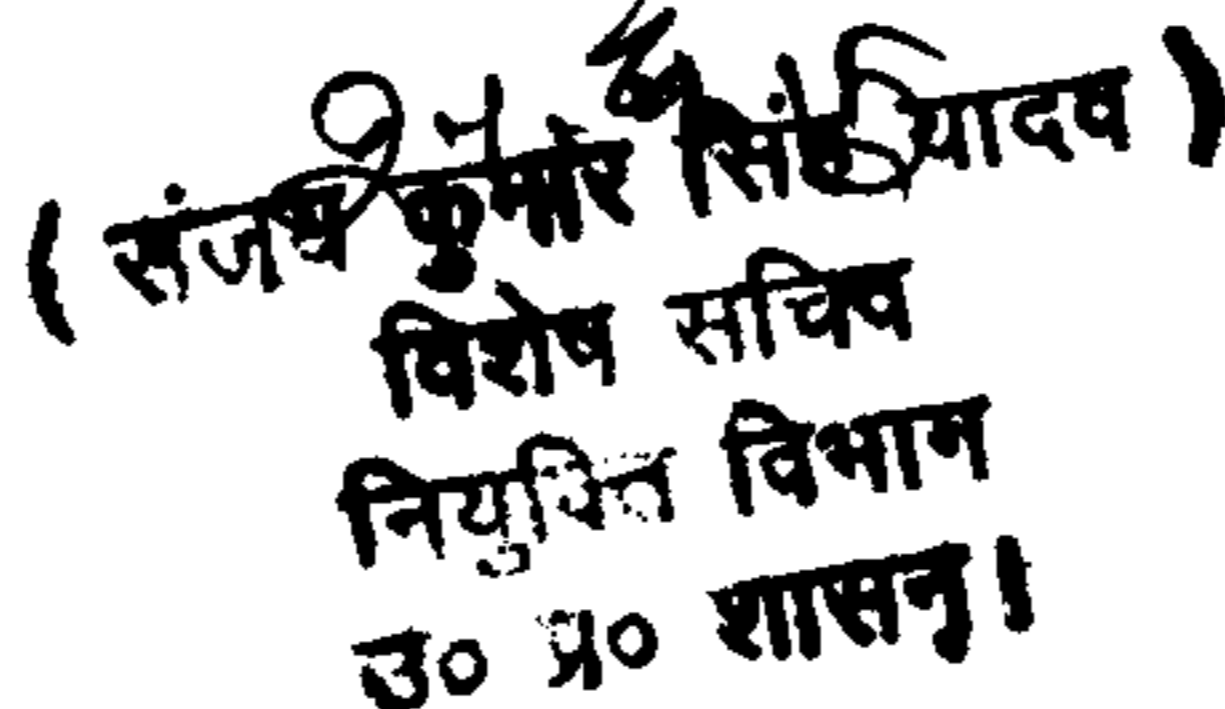 ( संजय कुमार सिंह यादव )
विशेष सचिव
नियुक्ति विभाग
उ० प्र० शासन।